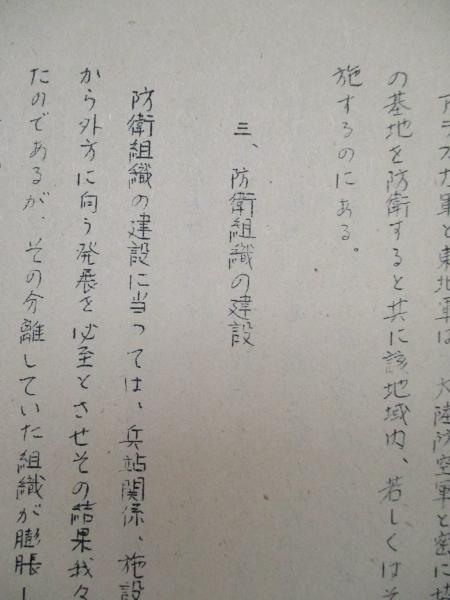 アラスカ軍と東北軍は、大陸防空軍と密に
の基地を防衛すると共に該地域内、若しくはそ
施するのにある。
三、防衛組織の建設
防衛組織の建設に当つては、兵站関係、施設
から外方に向う発展を必至とさせその結果我々
たのであるが、その分離していた組織が膨脹し